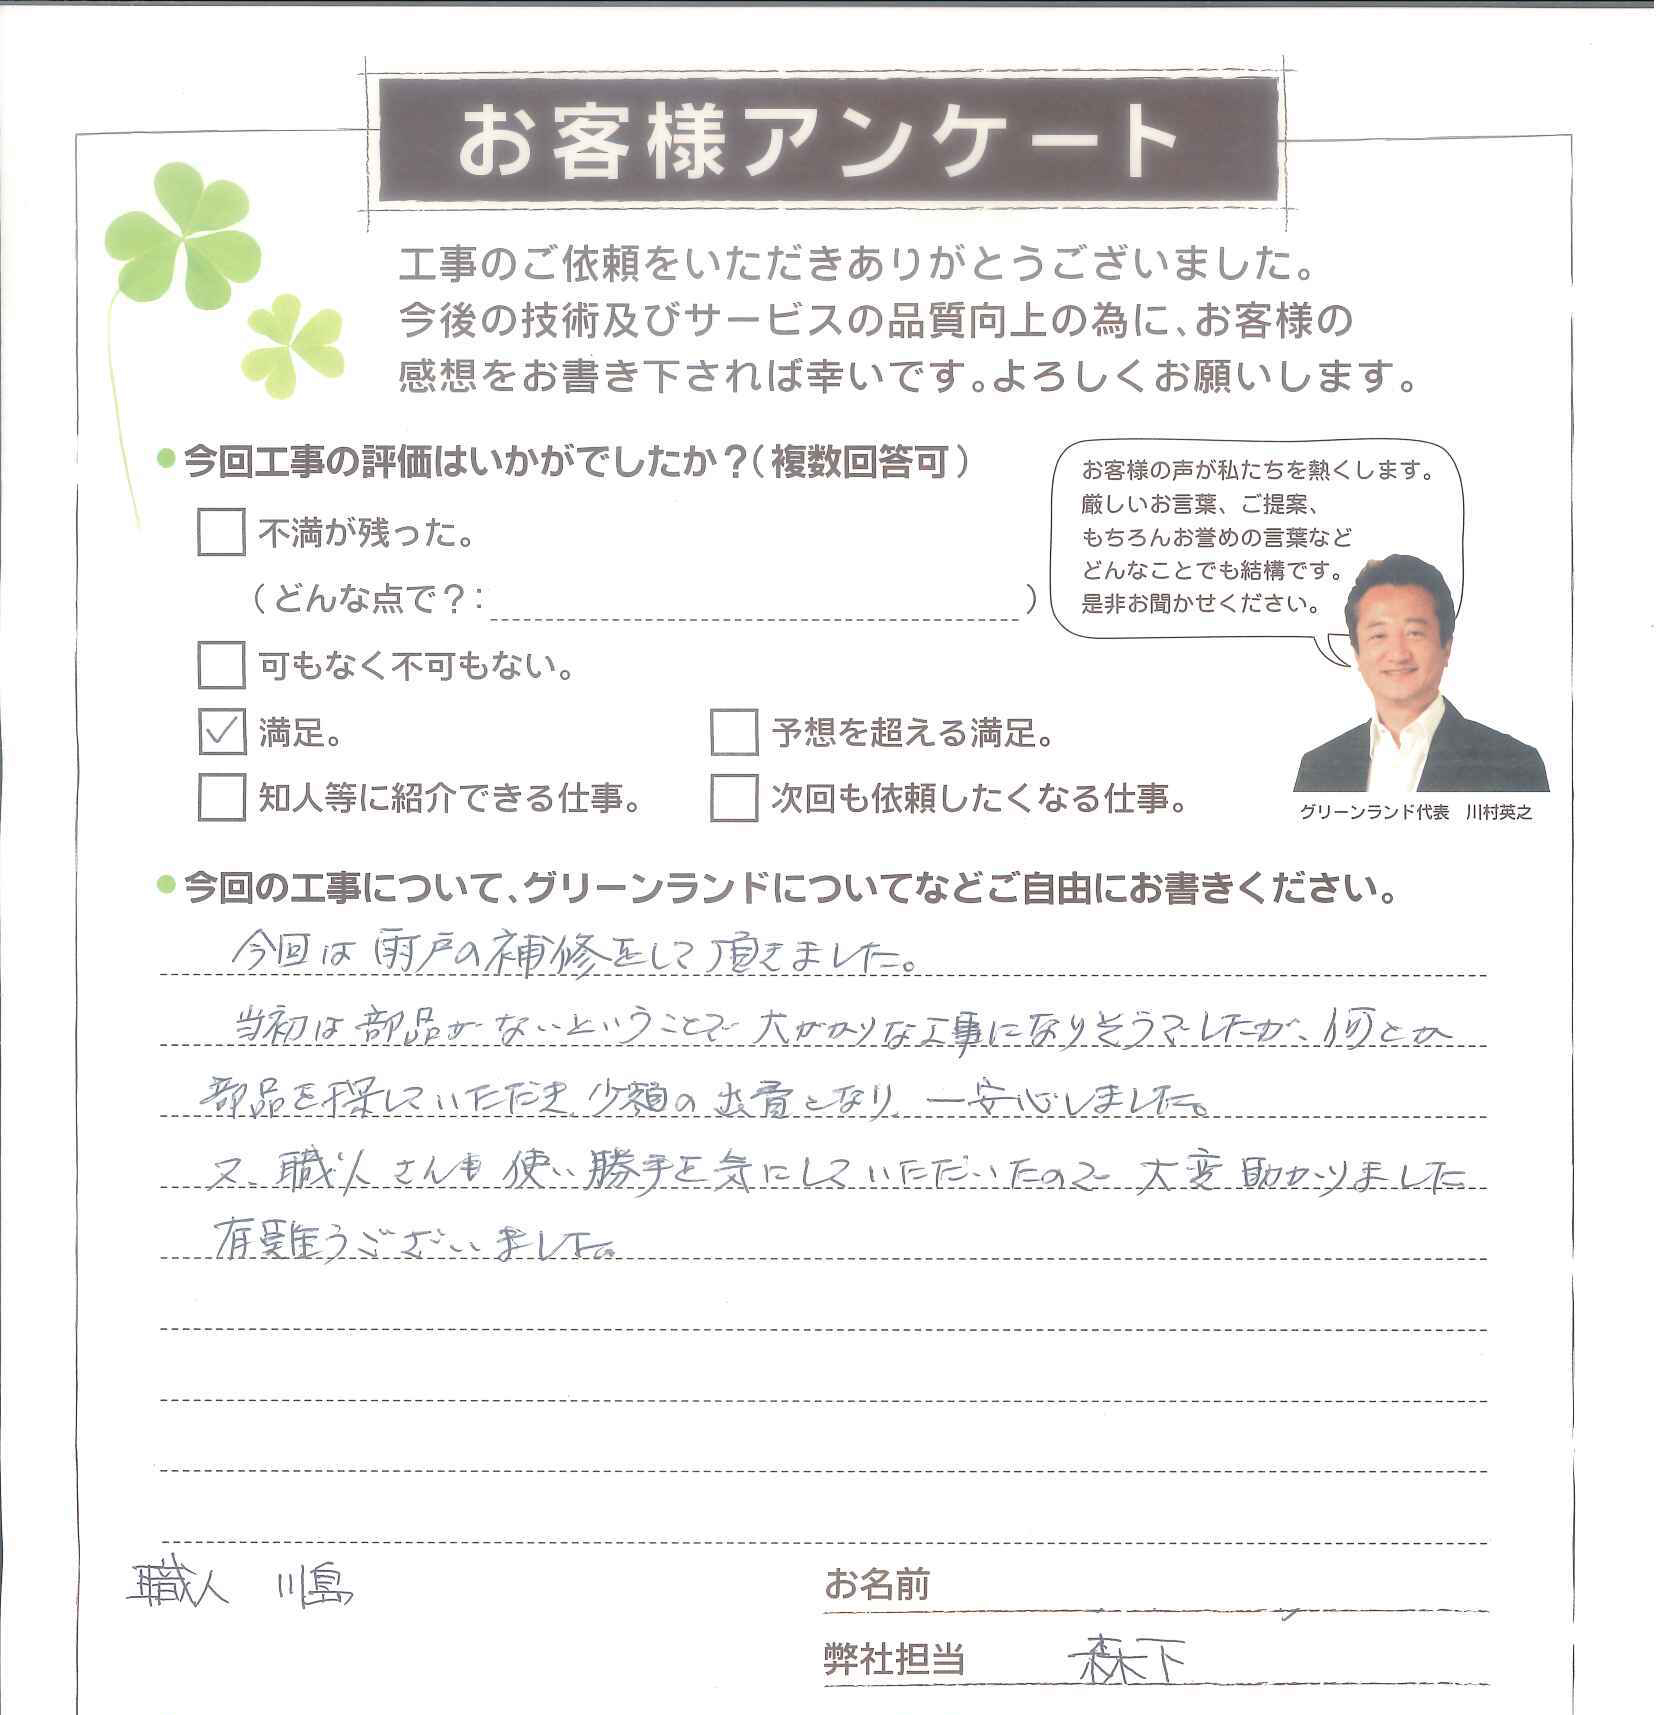 お客様アンケート
工事のご依頼をいただきありがとうございました。
今後の技術及びサービスの品質向上の為に、お客様の
感想をお書き下されば幸いです。よろしくお願いします。
今回工事の評価はいかがでしたか？（複数回答可）
不満が残った。
（どんな点で？： ）
可もなく不可もない。
満足。
予想を超える満足。
知人等に紹介できる仕事。
次回も依頼したくなる仕事。
お客様の声が私たちを熱くします。
厳しいお言葉、ご提案、
もちろんお誉めの言葉など
どんなことでも結構です。
是非お聞かせください。
グリーンランド代表 川村英之
今回の工事について、グリーンランドについてなどご自由にお書きください。
今回は雨戸の補修をして頂きました。
当初は部品がないということで大がかりな工事になりそうでしたが、何とか
部品を探していただき、少額の出費となり、一安心しました。
又、職人さんも使い勝手を気にしていただいたので大変助かりました
有難うございました。
職人 川島
お名前
弊社担当 森下